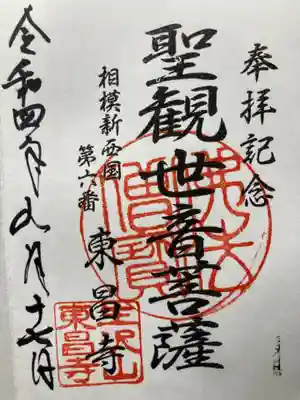 奉拝記念
聖観世音菩薩
相模新西国
第六番
東昌寺
令和四年九月十七日
佛法
僧寶
東昌寺